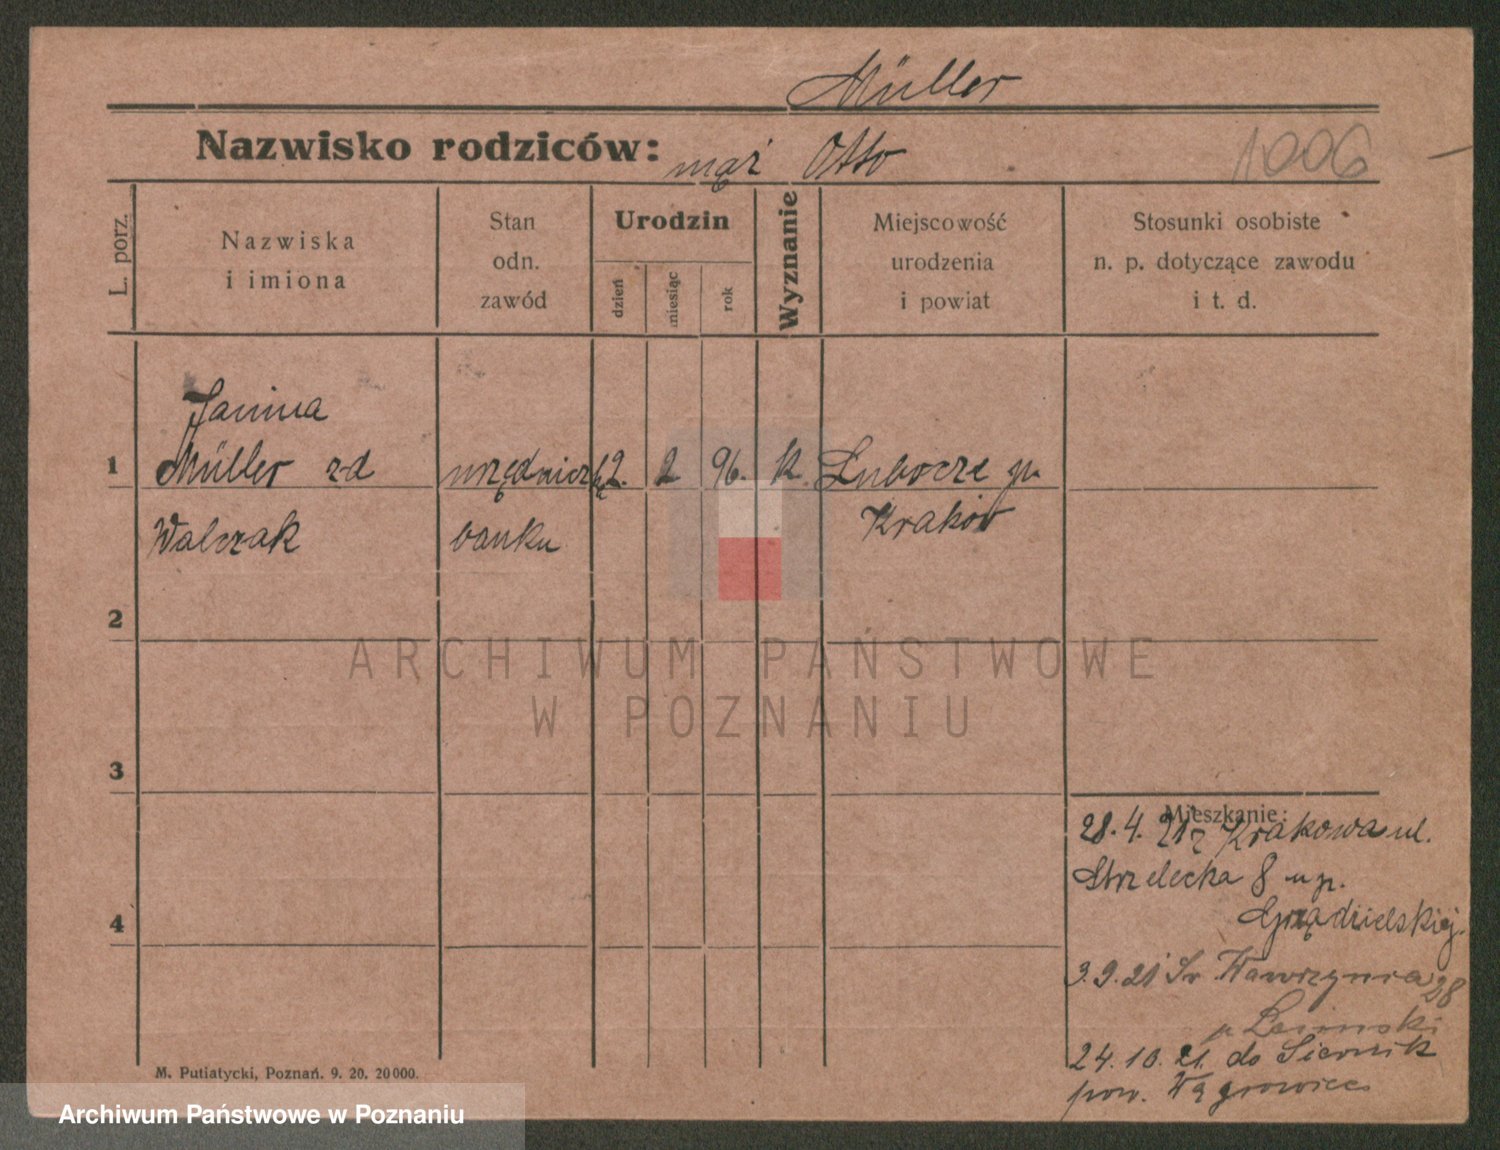 Müller
Nazwisko rodziców: mąż Otto
1006
L. porz.
Nazwiska
i imiona
Stan
odn.
zawód
Urodzin
dzień
miesiąc
rok
Wyznanie
Miejscowość
urodzenia
i powiat
Stosunki osobiste
n. p. dotyczące zawodu
i t. d.
Janina
1 Müller zd urzędniczka 2. 2 96. k. Lubocze p.
Walczak banku Kraków
2
ARCHIWUM PAŃSTWOWE
W POZNANIU
3
Mieszkanie:
28.4.21 z Krakowa ul.
Strzelecka 8 u p.
Grządzielskiej.
4
3.9.21 Św Wawrzyńca 28
p
24.10.21. do Siernik
pow. Wągrowiec
M. Putiatycki, Poznań. 9. 20. 20000.
Archiwum Państwowe w Poznaniu